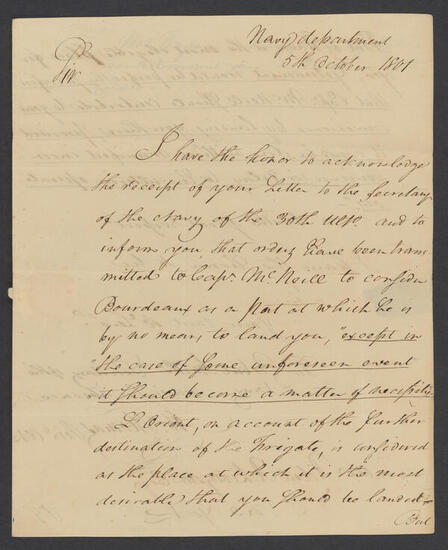 Navy department
5th October 1801
Sir
I have the honor to acknowledge
the receipt of your Letter to the Secretary
of the Navy of the 30th Ulto. and to
inform you that orders have been trans
mitted to Capn. McNeill to consider
Bourdeaux as a Port at which he is
by no means, to land you, "except in
"the case of some unforeseen event
it should become a matter of necessity."
L'Orient, on account of the further
destination of the Frigate, is considered
as the place at which it is the most
desirable that you should be landed
But